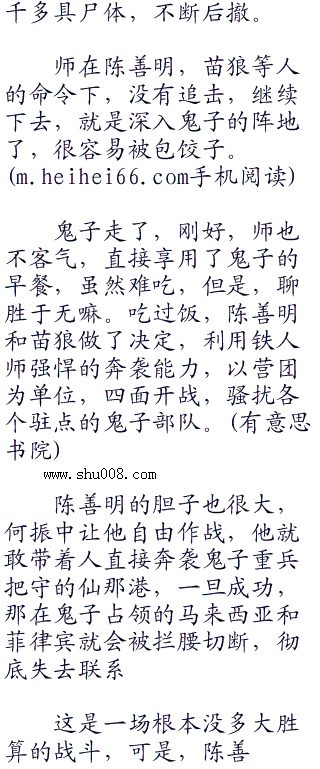 千多具尸体，不断后撤。
师在陈善明，苗狼等人
的命令下，没有追击，继续
下去，就是深入鬼子的阵地
了，很容易被包饺子。
(m.heihei66.com手机阅读)
鬼子走了，刚好，师也
不客气，直接享用了鬼子的
早餐，虽然难吃，但是，聊
胜于无嘛。吃过饭，陈善明
和苗狼做了决定，利用铁人
师强悍的奔袭能力，以营团
为单位，四面开战，骚扰各
个驻点的鬼子部队。(有意思
书院)
www.shu008.com
陈善明的胆子也很大，
何振中让他自由作战，他就
敢带着人直接奔袭鬼子重兵
把守的仙那港，一旦成功，
那在鬼子占领的马来西亚和
菲律宾就会被拦腰切断，彻
底失去联系
这是一场根本没多大胜
算的战斗，可是，陈善